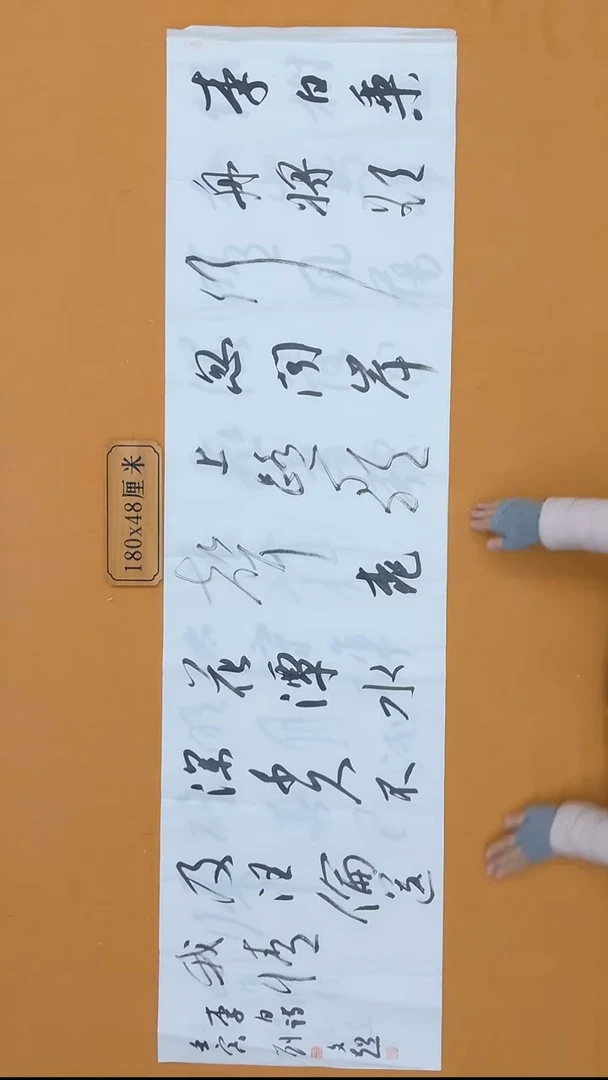 李白乘
舟将欲
行
忽闻岸
上踏歌
声桃
花潭水
深千尺不
及汪倫送
我情
李白诗
壬寅刘文超
180x48厘米